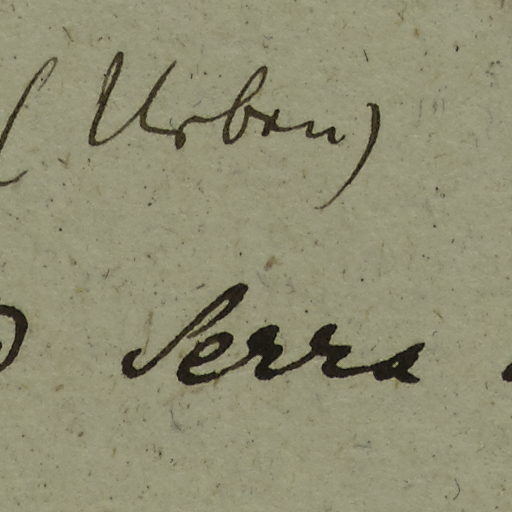 (Urban)
Serra